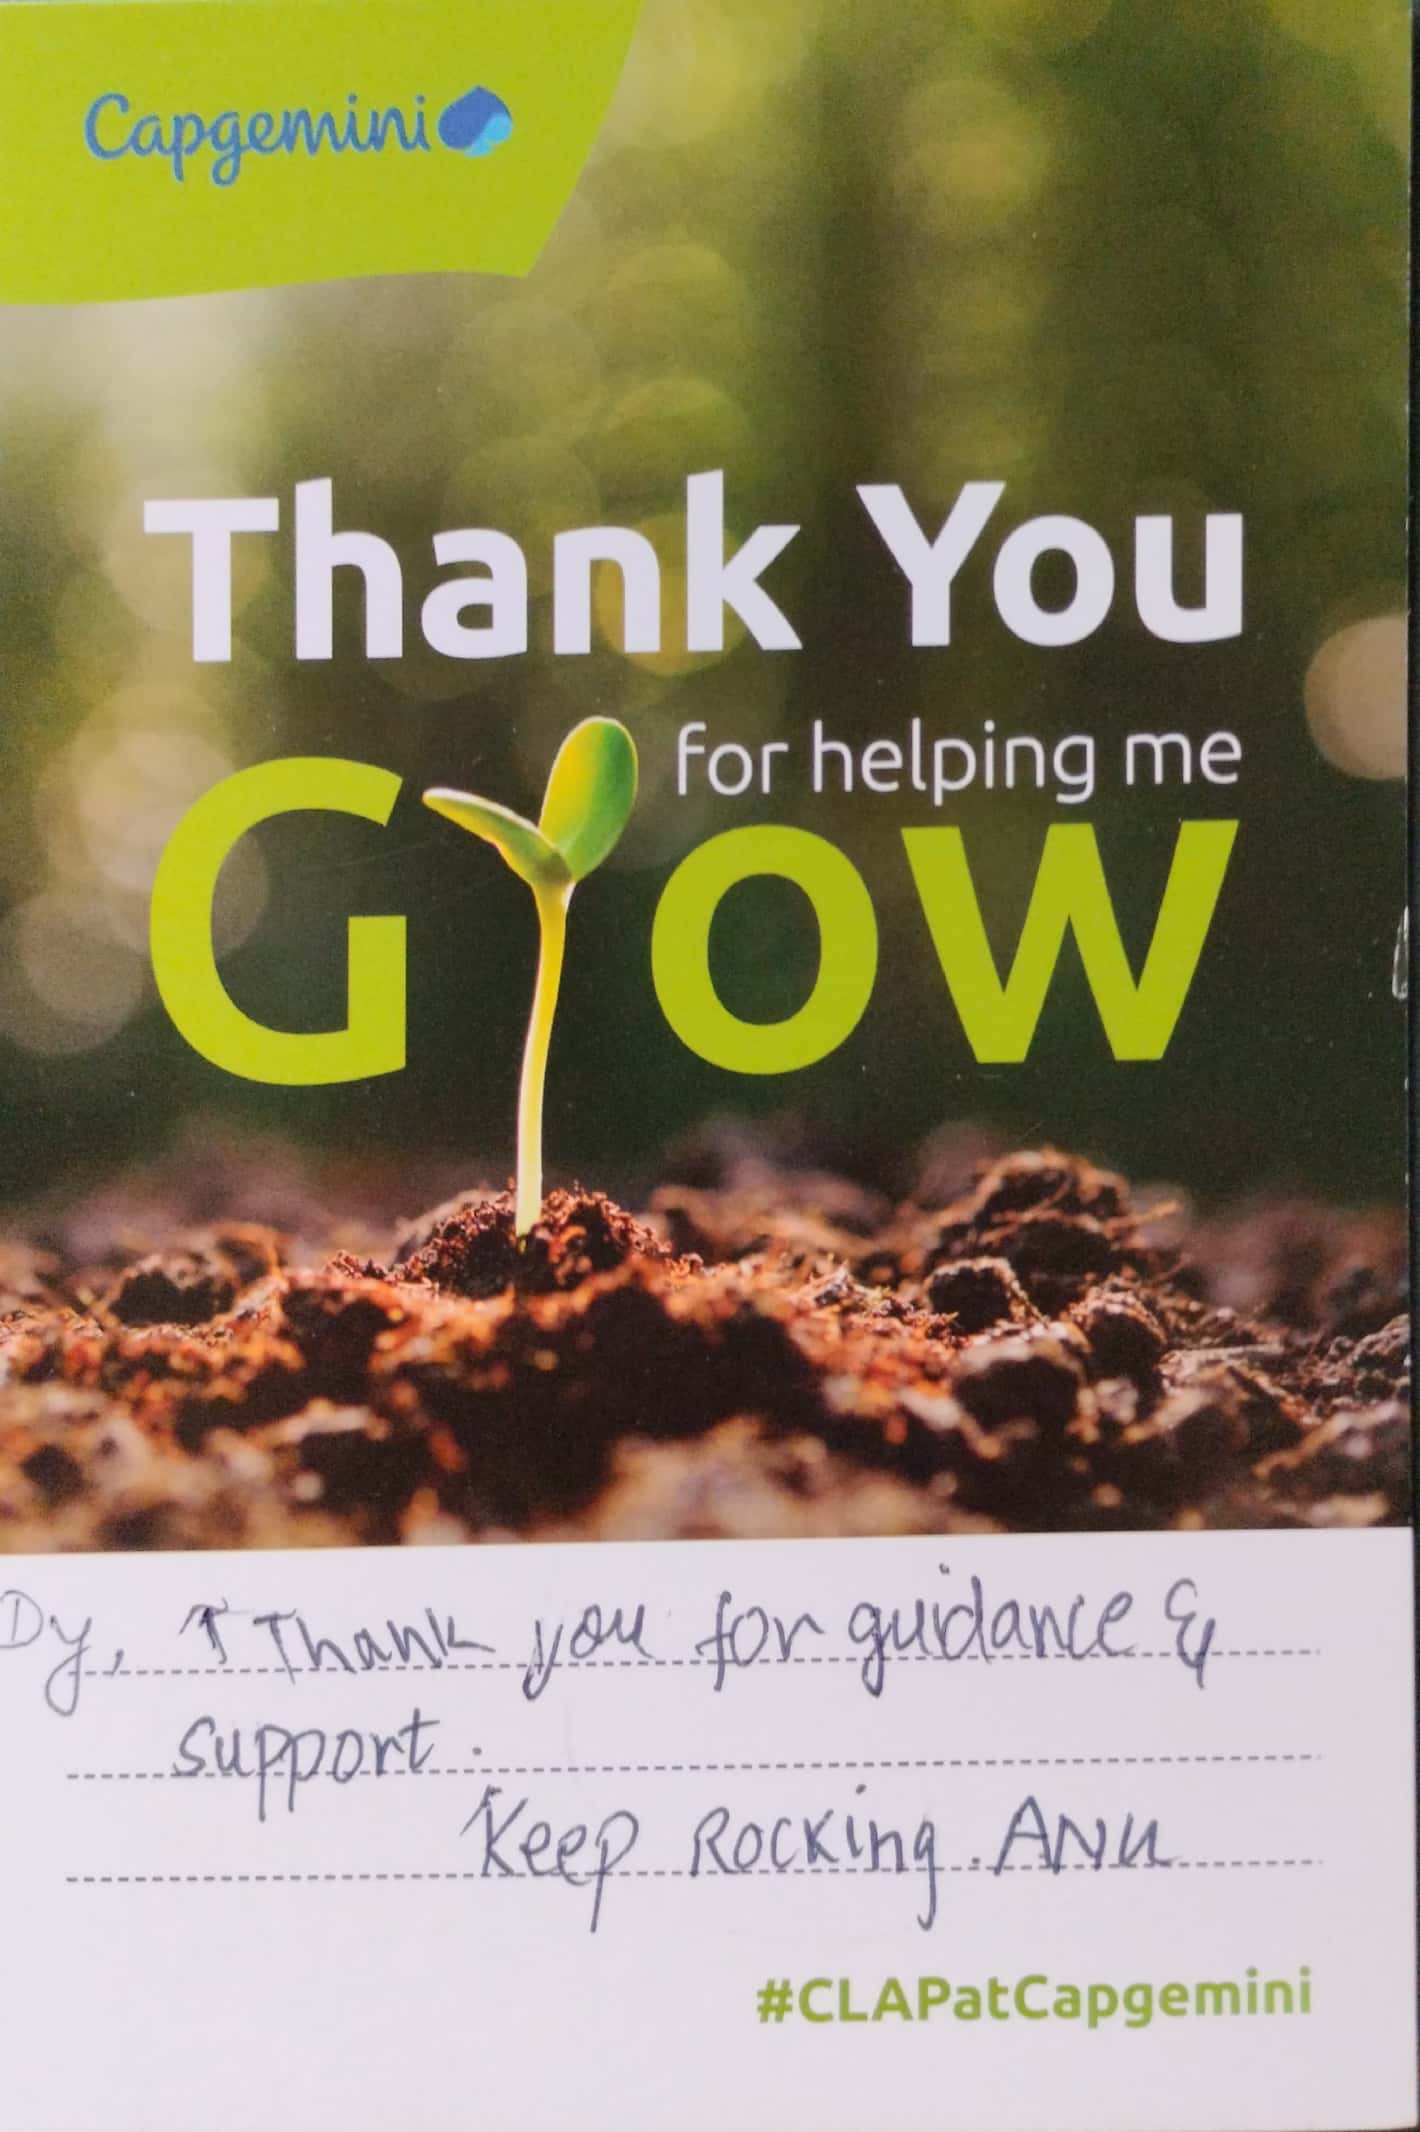 Capgemini
Thank You
for helping me
Grow
Dy, Thank you for guidance &
support.
Keep Rocking. ANU
#CLAPatCapgemini